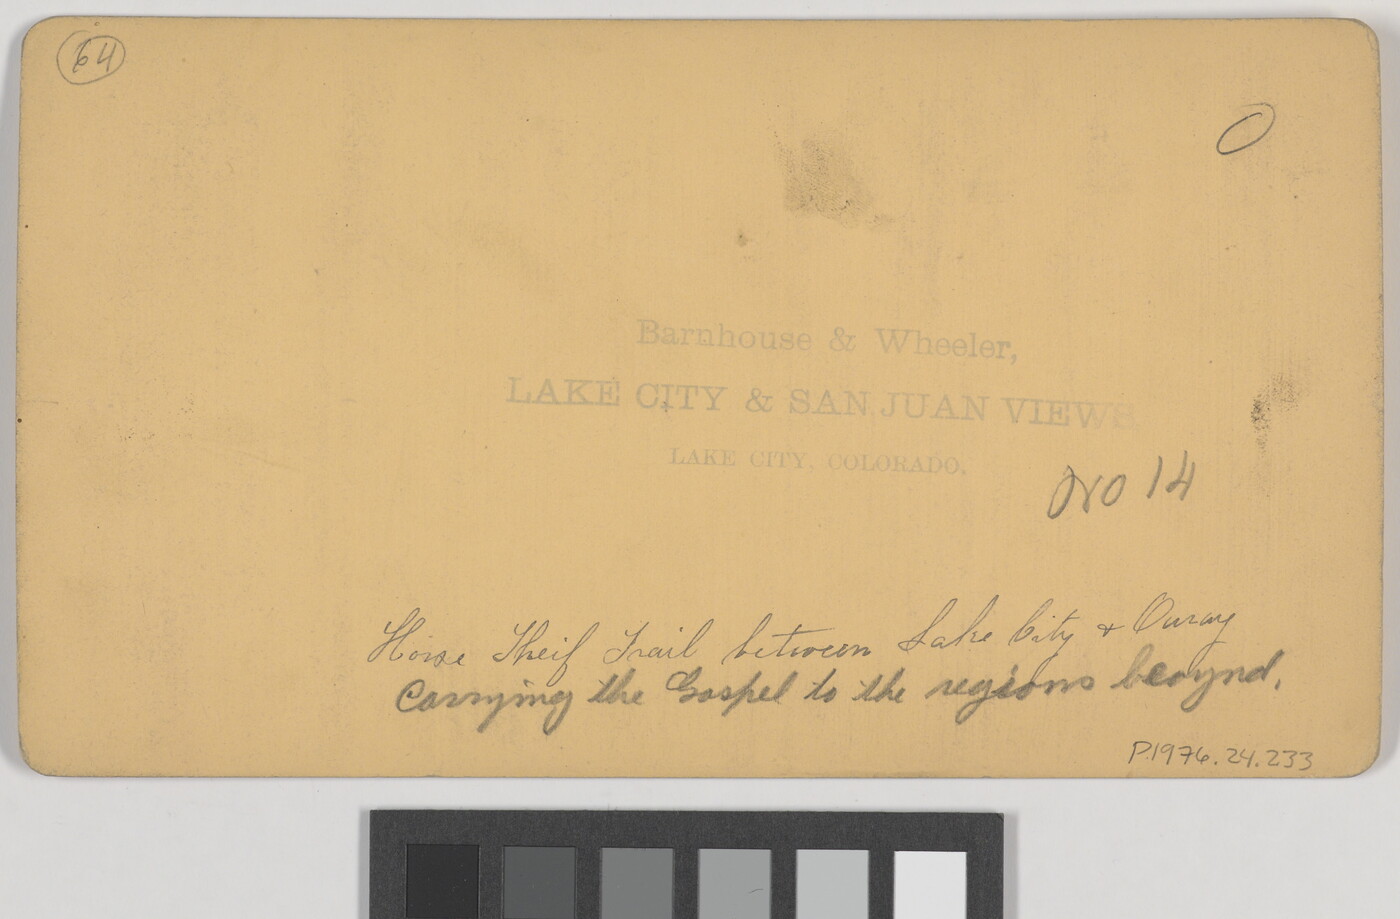 64
O
Barnhouse & Wheeler,
LAKE CITY & SAN JUAN VIEWS
LAKE CITY, COLORADO.
No 14
Horse Theif Trail between Lake City & Ouray
Carrying the Gospel to the regions beoynd.
P.1976.24.233